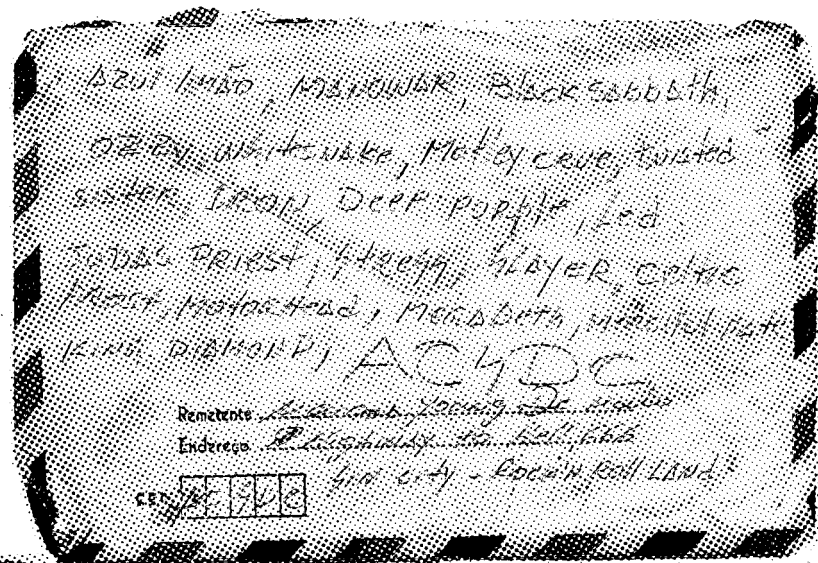 AZUL LIMÃO, MANOWAR, BLACK SABBATH,
OZZY, WHITSNAKE, Motley CRUE, twisted
sister IRON, DEEP PURPLE, Led
JUDAS PRIEST, SLAYER, CELTIC
FROST, MOTORHEAD, MEGADETH, MERCIFUL FATE
KING DIAMOND, AC⚡DC
Remetente Young De
Endereço HIGHWAY to HELL, 666
SIN City - ROCK'N ROLL LAND
CEP